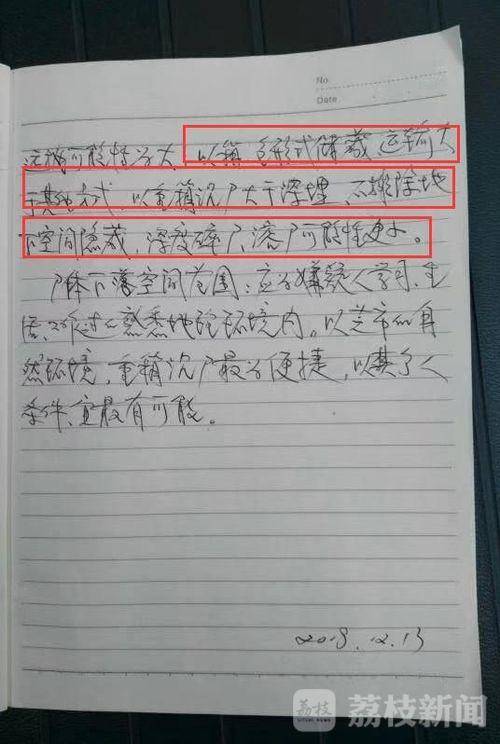 No.
Date
远抛可能性为大、以箱、包形式储藏、运输大
于其它方式，以重箱沉尸大于深埋，不排除地
下空间隐藏，深度碎尸、溶尸可能性更小。
尸体下落空间范围：应为嫌疑人学习、生
活、过 熟悉地理环境内。以芝市的自
然环境，重箱沉尸最为便捷，以其个人
条件、宜最有可能。
荔枝 荔枝新闻
LITCHI NEWS